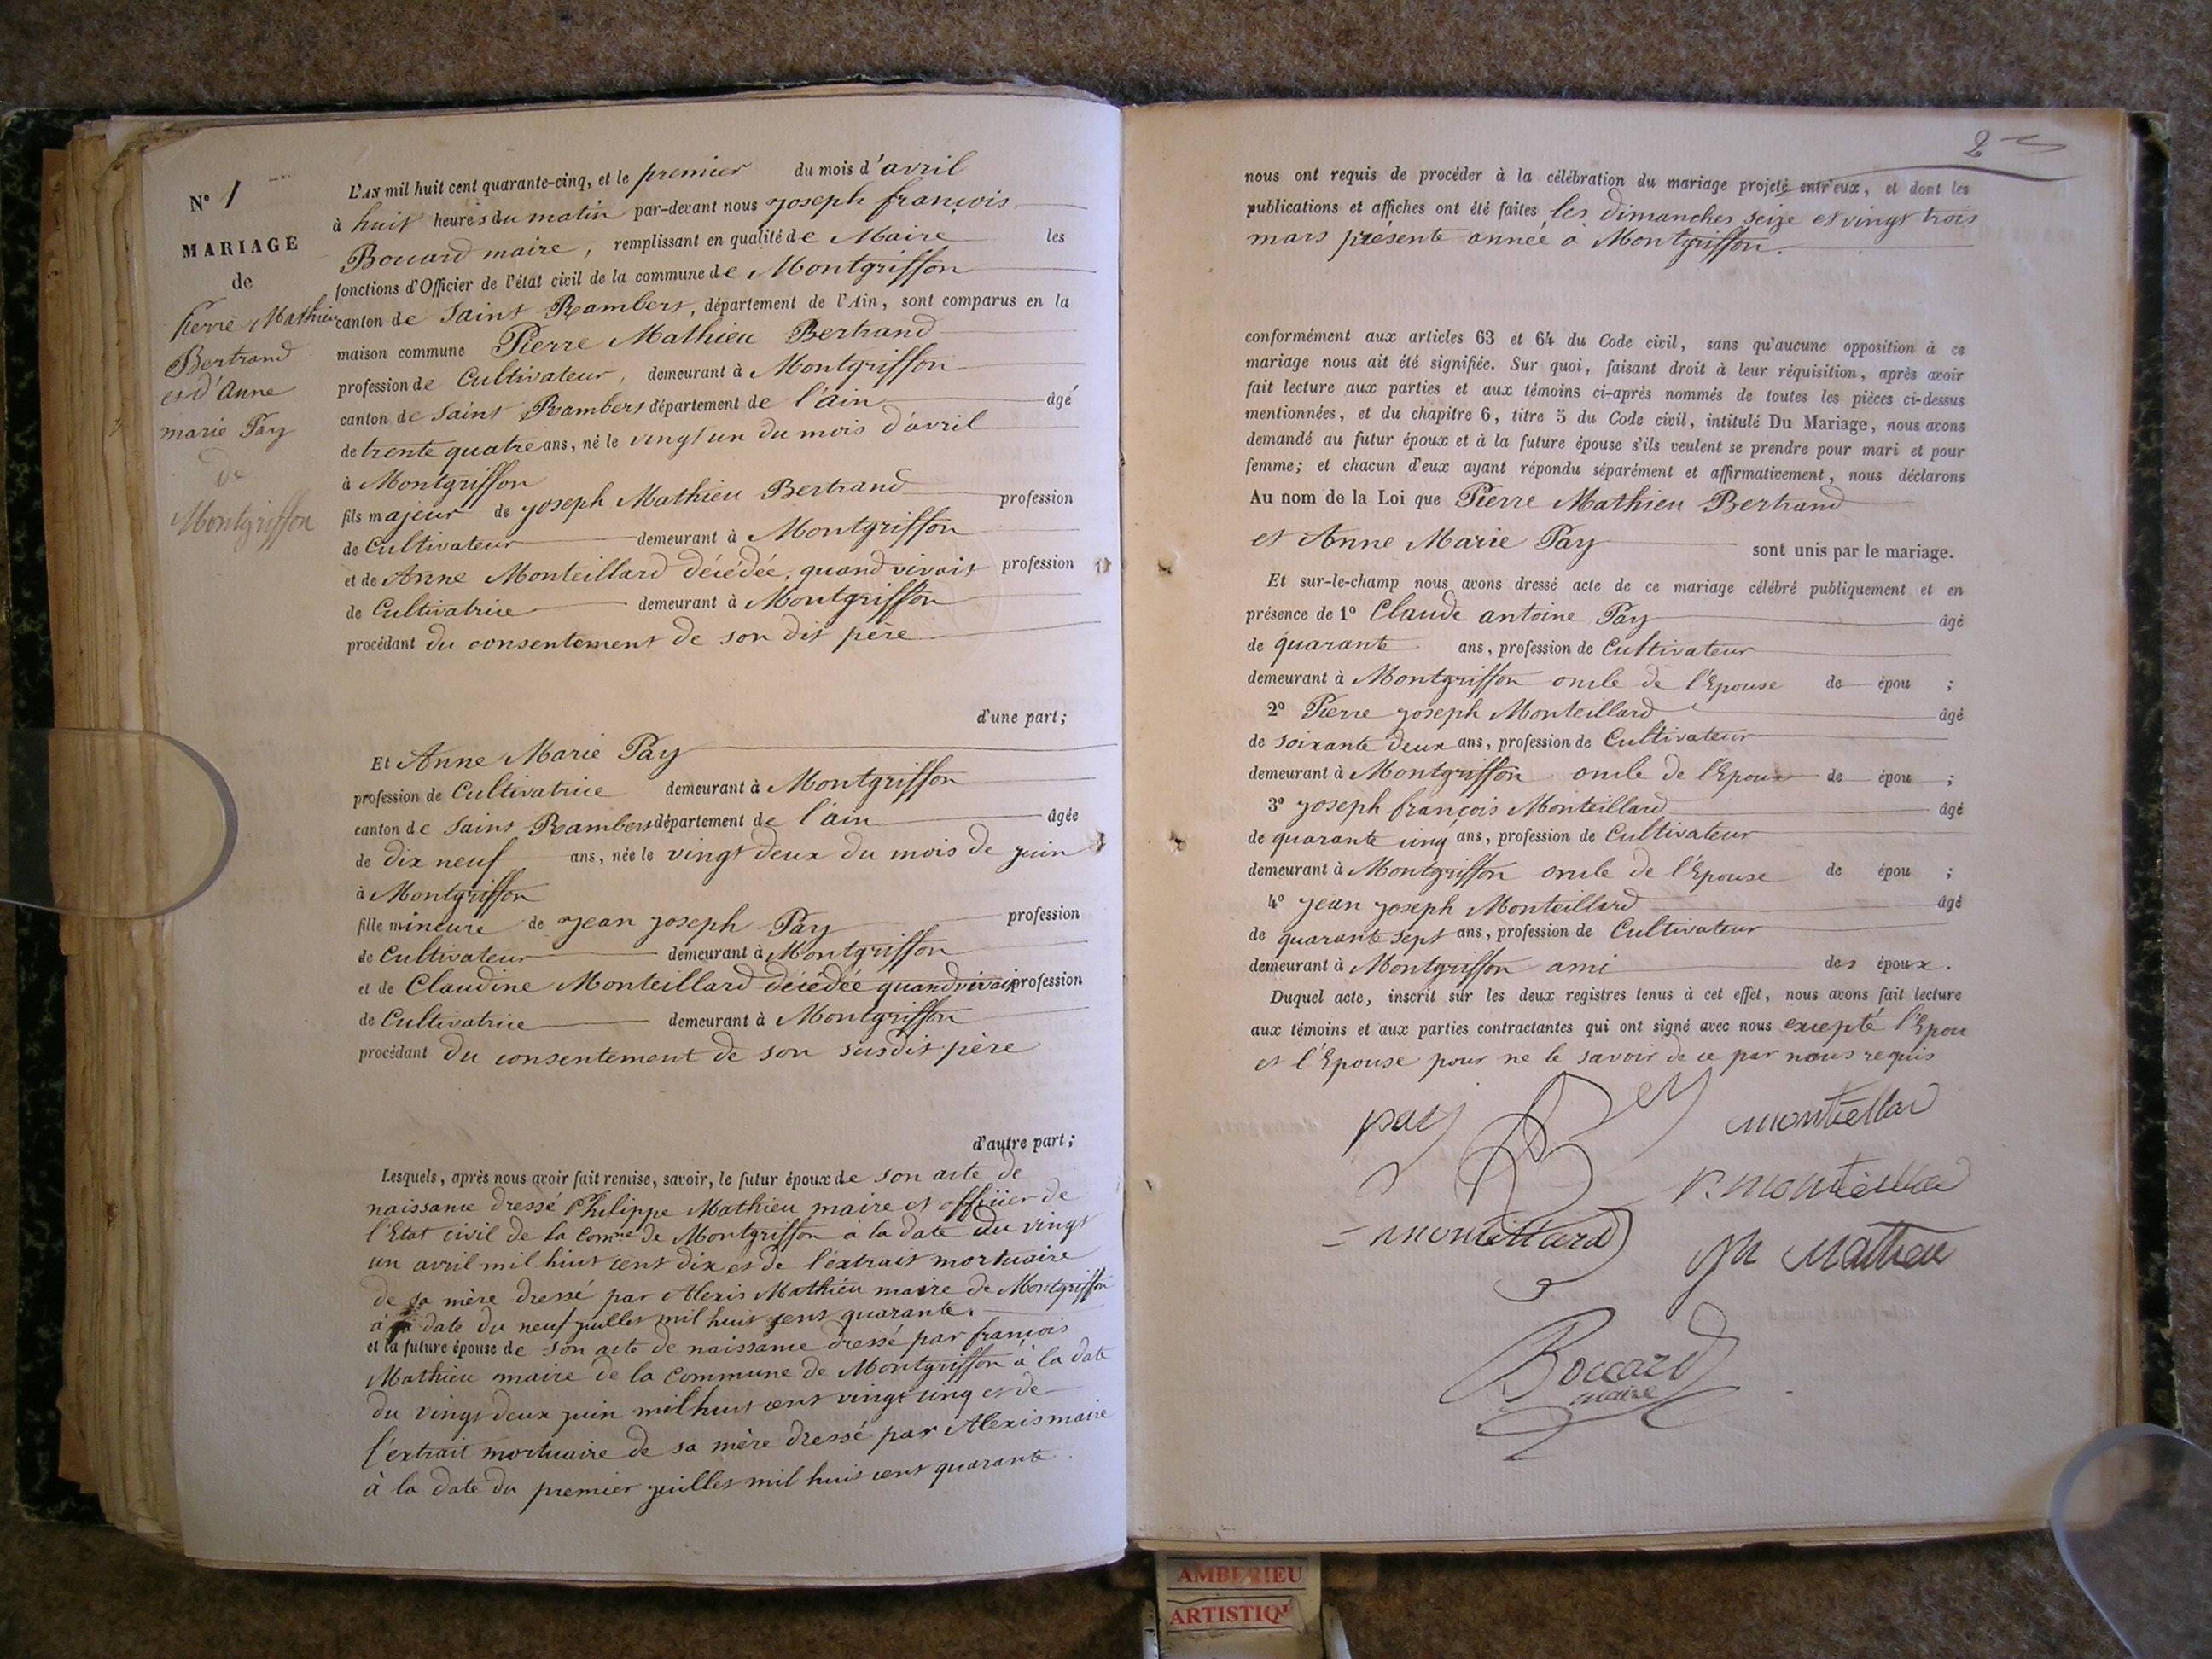 N° 1
MARIAGE
de
Pierre Mathieu
Bertrand
et d'Anne
marie Pay
de
Montgriffon
L'AN mil huit cent quarante-cinq, et le premier du mois d'avril
à huit heures du matin par-devant nous Joseph françois
Bouard maire, remplissant en qualité de Maire les
fonctions d'Officier de l'état civil de la commune de Montgriffon
canton de Saint Rambert, département de l'Ain, sont comparus en la
maison commune Pierre Mathieu Bertrand
profession de Cultivateur, demeurant à Montgriffon
canton de Saint Rambert département de l'ain âgé
de trente quatre ans, né le vingt un du mois d'avril
à Montgriffon
fils majeur de Joseph Mathieu Bertrand profession
de Cultivateur demeurant à Montgriffon
et de Anne Monteillard décédée, quand vivait profession
de Cultivatrice demeurant à Montgriffon
procédant du consentement de son dit père
d'une part;
Et Anne Marie Pay
profession de Cultivatrice demeurant à Montgriffon
canton de Saint Rambert département de l'ain âgée
de dix neuf ans, née le vingt deux du mois de juin
à Montgriffon
fille mineure de Jean Joseph Pay profession
de Cultivateur demeurant à Montgriffon
et de Claudine Monteillard décédée quand vivait profession
de Cultivatrice demeurant à Montgriffon
procédant du consentement de son susdit père
d'autre part;
Lesquels, après nous avoir fait remise, savoir, le futur époux de son acte de
naissance dressé Philippe Mathieu maire et officier de
l'Etat civil de la Comne de Montgriffon à la date du vingt
un avril mil huit cent dix et de l'extrait mortuaire
de sa mère dressé par Alexis Mathieu maire de Montgriffon
à la date du neuf juillet mil huit cent quarante.
et la future épouse de son acte de naissance dressé par françois
Mathieu maire de la Commune de Montgriffon à la date
du vingt deux juin mil huit cent vingt cinq et de
l'extrait mortuaire de sa mère dressé par Alexis maire
à la date du premier juillet mil huit cent quarante.
2
nous ont requis de procéder à la célébration du mariage projeté entr'eux, et dont les
publications et affiches ont été faites les dimanches seize et vingt trois
mars présente année à Montgriffon.
conformément aux articles 63 et 64 du Code civil, sans qu'aucune opposition à ce
mariage nous ait été signifiée. Sur quoi, faisant droit à leur réquisition, après avoir
fait lecture aux parties et aux témoins ci-après nommés de toutes les pièces ci-dessus
mentionnées, et du chapitre 6, titre 5 du Code civil, intitulé Du Mariage, nous avons
demandé au futur époux et à la future épouse s'ils veulent se prendre pour mari et pour
femme; et chacun d'eux ayant répondu séparément et affirmativement, nous déclarons
Au nom de la Loi que Pierre Mathieu Bertrand
et Anne Marie Pay sont unis par le mariage.
Et sur-le-champ nous avons dressé acte de ce mariage célébré publiquement et en
présence de 1° Claude antoine Pay âgé
de quarante ans, profession de Cultivateur
demeurant à Montgriffon oncle de l'Epouse de épou ;
2° Pierre Joseph Monteillard âgé
de soixante deux ans, profession de Cultivateur
demeurant à Montgriffon oncle de l'Epoux de épou ;
3° Joseph françois Monteillard âgé
de quarante cinq ans, profession de Cultivateur
demeurant à Montgriffon oncle de l'Epouse de épou ;
4° Jean Joseph Monteillard âgé
de quarante sept ans, profession de Cultivateur
demeurant à Montgriffon ami des époux.
Duquel acte, inscrit sur les deux registres tenus à cet effet, nous avons fait lecture
aux témoins et aux parties contractantes qui ont signé avec nous excepté l'Epou
et l'Epouse pour ne le savoir de ce par nous requis
pay
monteillard
Mathieu
Bouard
maire
AMBERIEU
ARTISTIQ